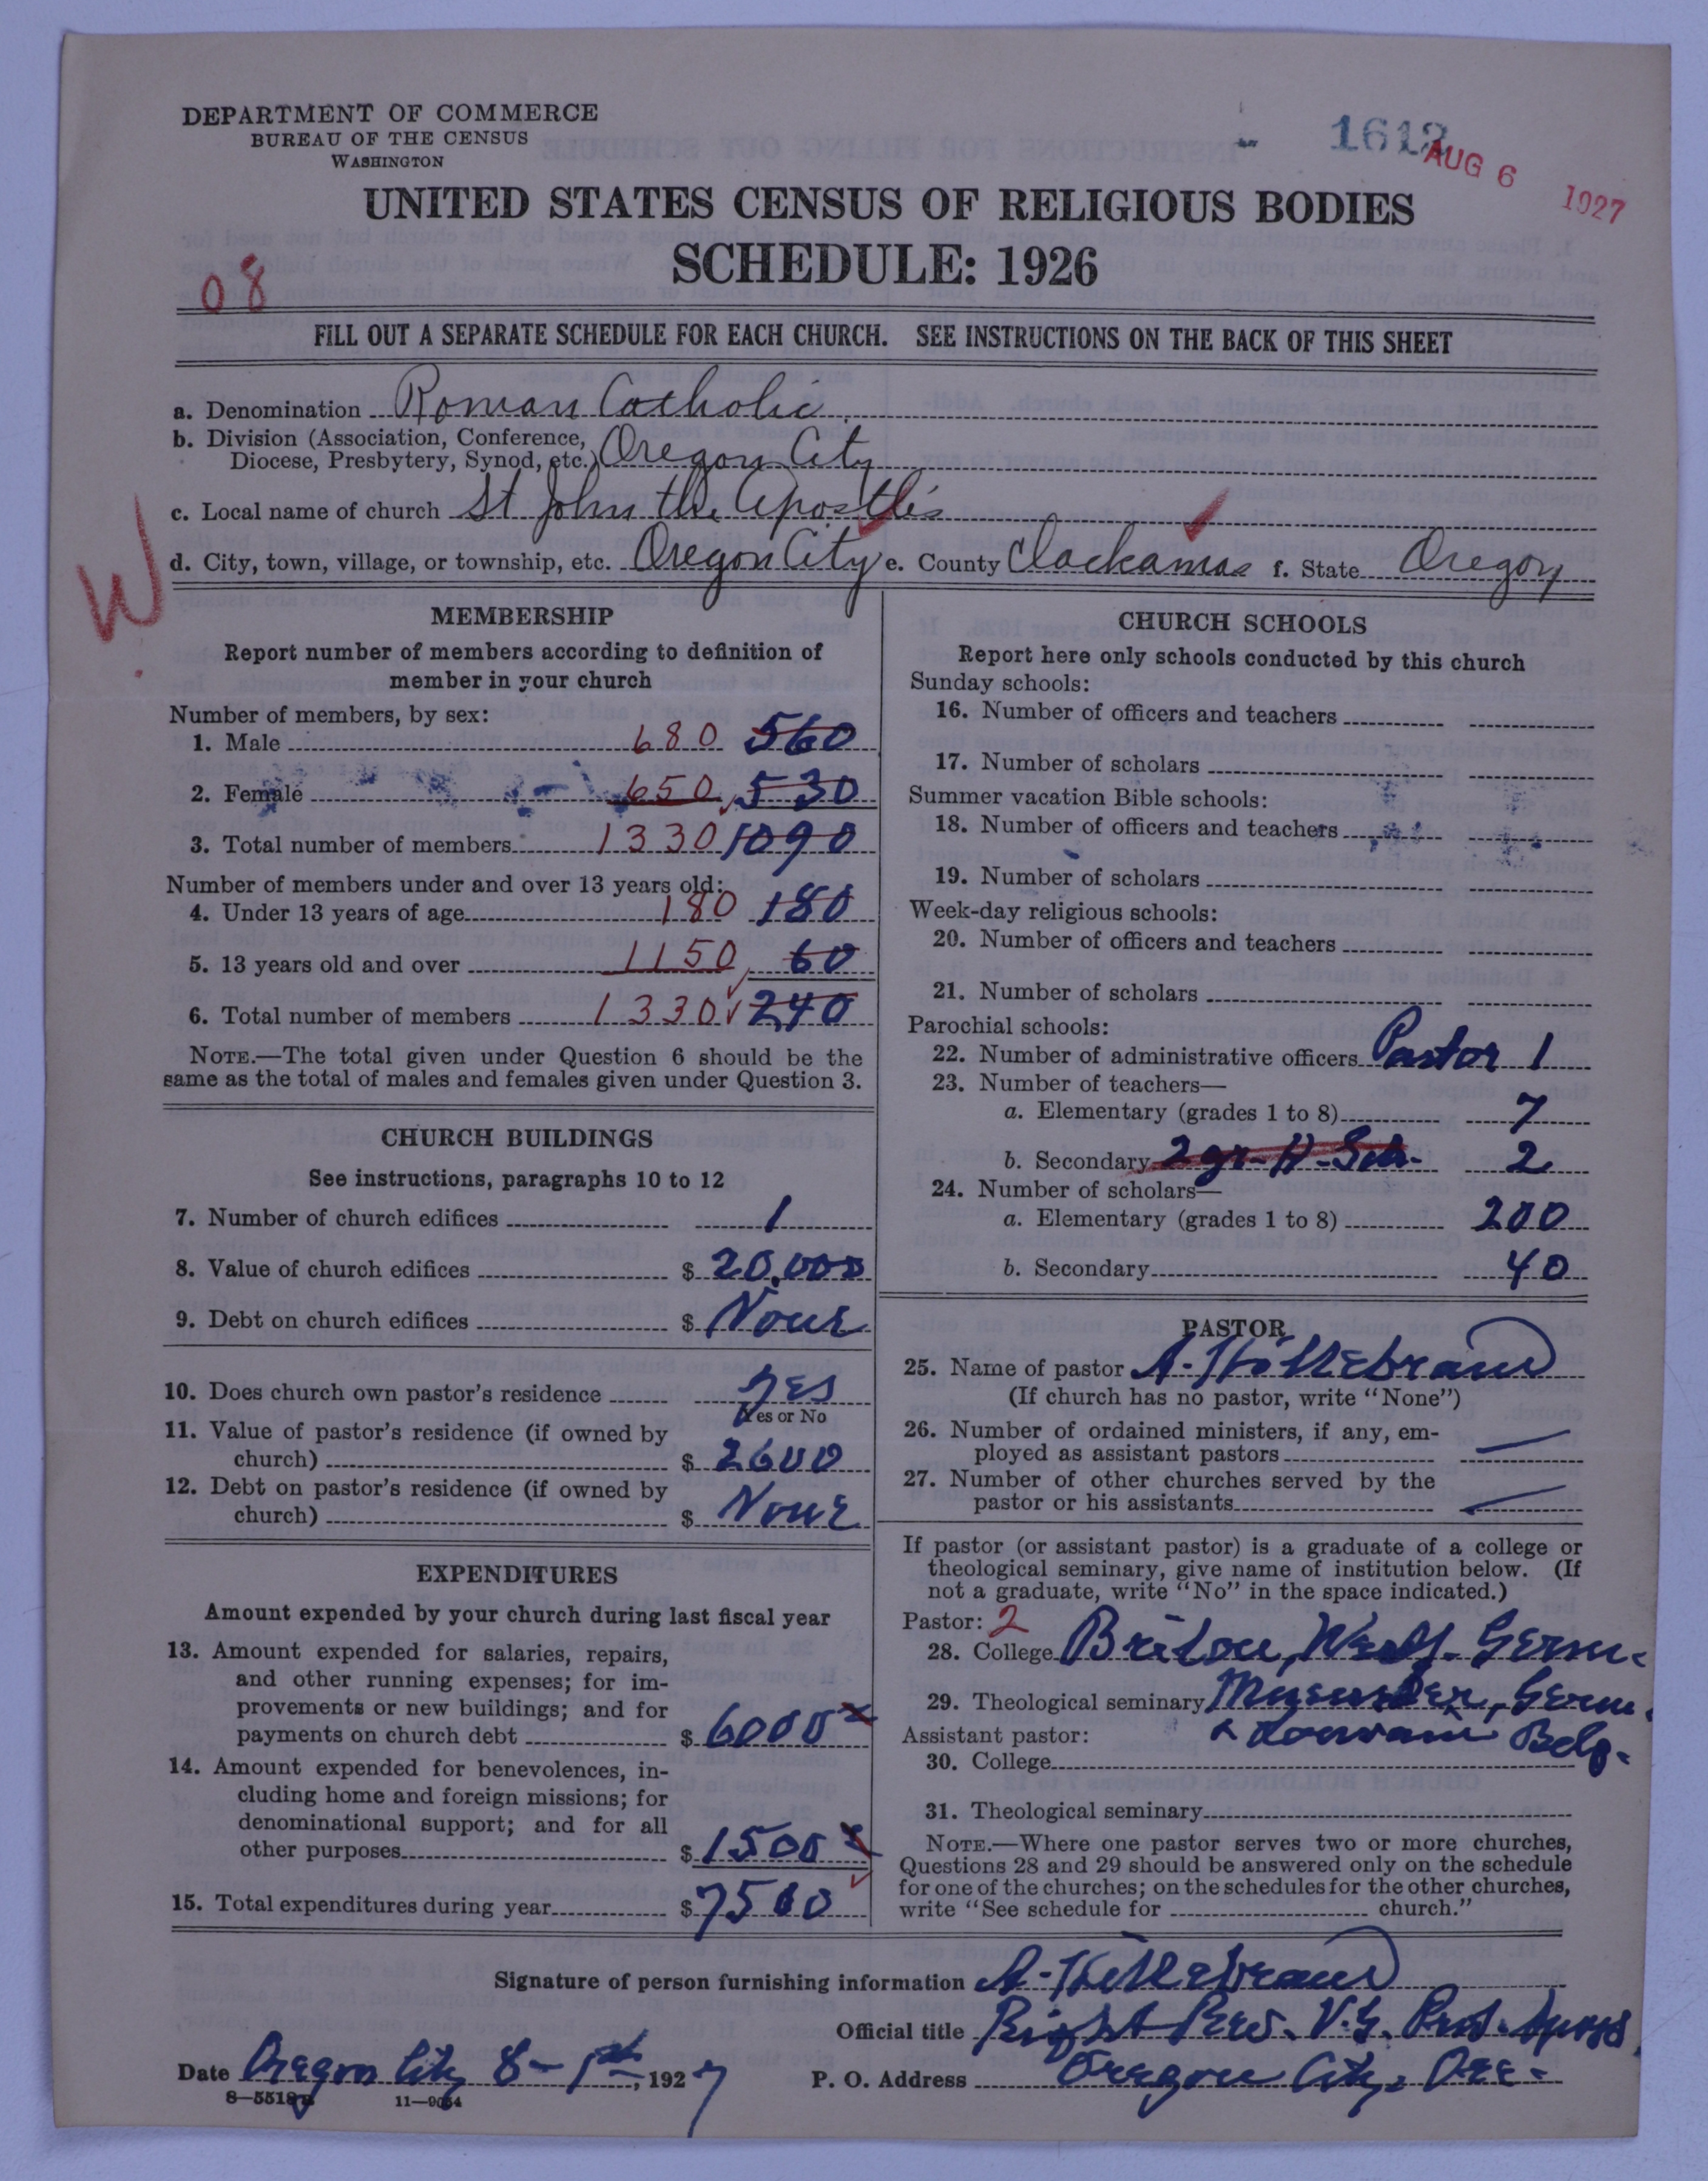 DEPARTMENT OF COMMERCE
BUREAU OF THE CENSUS
WASHINGTON
1612
AUG 6 1927
UNITED STATES CENSUS OF RELIGIOUS BODIES
SCHEDULE: 1926
08
FILL OUT A SEPARATE SCHEDULE FOR EACH CHURCH. SEE INSTRUCTIONS ON THE BACK OF THIS SHEET
a. Denomination Roman Catholic
b. Division (Association, Conference,
Diocese, Presbytery, Synod, etc.) Oregon City
c. Local name of church St John the Apostle's
d. City, town, village, or township, etc. Oregon City e. County Clackamas f. State Oregon
W
MEMBERSHIP
Report number of members according to definition of
member in your church
Number of members, by sex:
1. Male 680 560
2. Female 650 530
3. Total number of members 1330 1090
Number of members under and over 13 years old:
4. Under 13 years of age 180 180
5. 13 years old and over 1150 60
6. Total number of members 1330 240
NOTE.—The total given under Question 6 should be the
same as the total of males and females given under Question 3.
CHURCH BUILDINGS
See instructions, paragraphs 10 to 12
7. Number of church edifices 1
8. Value of church edifices $ 20,000
9. Debt on church edifices $ None
10. Does church own pastor's residence yes
Yes or No
11. Value of pastor's residence (if owned by
church) $ 2600
12. Debt on pastor's residence (if owned by
church) $ None
EXPENDITURES
Amount expended by your church during last fiscal year
13. Amount expended for salaries, repairs,
and other running expenses; for im-
provements or new buildings; and for
payments on church debt $ 6000
14. Amount expended for benevolences, in-
cluding home and foreign missions; for
denominational support; and for all
other purposes $ 1500
15. Total expenditures during year $ 7500
CHURCH SCHOOLS
Report here only schools conducted by this church
Sunday schools:
16. Number of officers and teachers
17. Number of scholars
Summer vacation Bible schools:
18. Number of officers and teachers
19. Number of scholars
Week-day religious schools:
20. Number of officers and teachers
21. Number of scholars
Parochial schools:
22. Number of administrative officers Pastor 1
23. Number of teachers—
a. Elementary (grades 1 to 8) 7
b. Secondary 2 gr-H-Sch. 2
24. Number of scholars—
a. Elementary (grades 1 to 8) 200
b. Secondary 40
PASTOR
25. Name of pastor A. Hillebrand
(If church has no pastor, write "None")
26. Number of ordained ministers, if any, em-
ployed as assistant pastors —
27. Number of other churches served by the
pastor or his assistants —
If pastor (or assistant pastor) is a graduate of a college or
theological seminary, give name of institution below. (If
not a graduate, write "No" in the space indicated.)
Pastor: 2
28. College Brilon, Westf. Germ.
29. Theological seminary Muenster, Germ.
Assistant pastor: & Louvain Belg.
30. College
31. Theological seminary
NOTE.—Where one pastor serves two or more churches,
Questions 28 and 29 should be answered only on the schedule
for one of the churches; on the schedules for the other churches,
write "See schedule for church."
Signature of person furnishing information A. Hillebrand
Official title Right Rev. V.G. Prot. Apost.
Date Oregon City 8-1st, 1927 P. O. Address Oregon City, Ore.
8-5518 11-9054